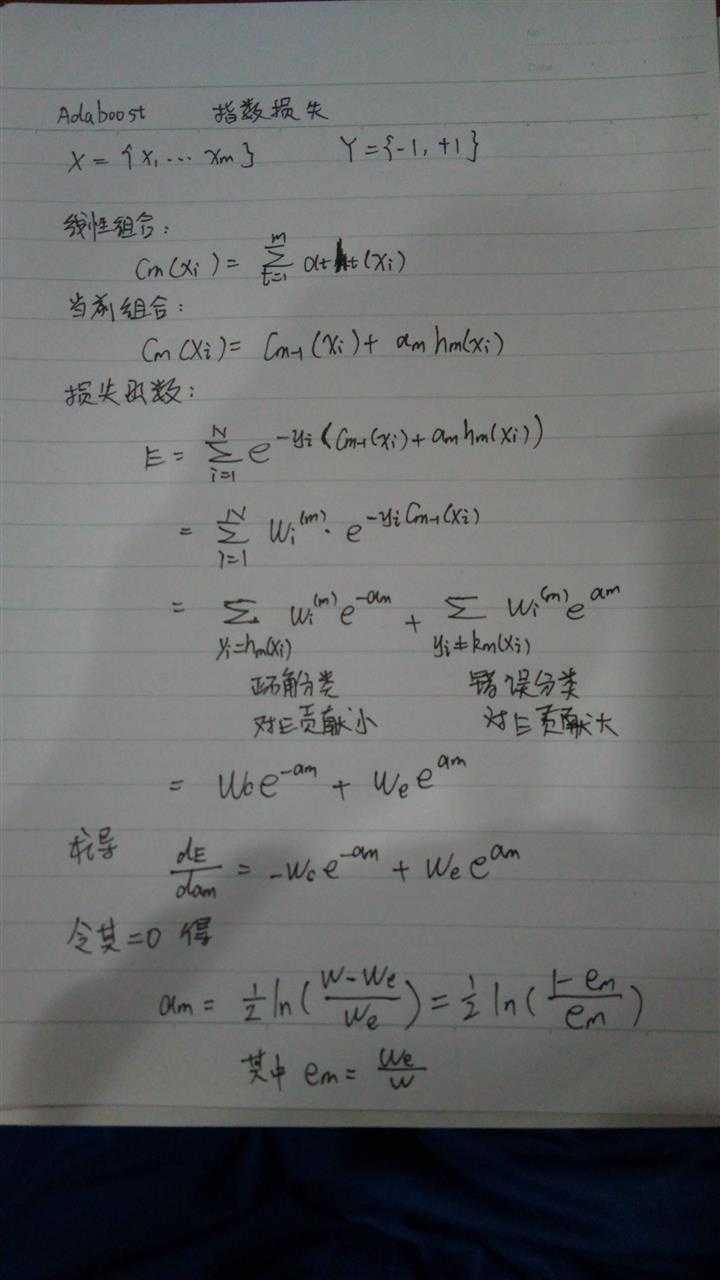 No.
Date.
Adaboost 指数损失
X = {x₁ ... xₘ} Y = {-1, +1}
线性组合：
Cm(xi) = ∑_{t=1}^{m} αt ht(xi)
当前组合：
Cm(xi) = Cm-1(xi) + αm hm(xi)
损失函数：
E = ∑_{i=1}^{N} e^{-yi(Cm-1(xi) + αm hm(xi))}
= ∑_{i=1}^{N} Wi^{(m)} · e^{-yi Cm-1(xi)}
= ∑_{yi=hm(xi)} Wi^{(m)} e^{-αm} + ∑_{yi≠km(xi)} Wi^{(m)} e^{αm}
正确分类 错误分类
对E贡献小 对E贡献大
= Wc e^{-αm} + We e^{αm}
求导 dE/dαm = -Wc e^{-αm} + We e^{αm}
令其=0 得
αm = 1/2 ln((W-We)/We) = 1/2 ln((1-em)/em)
其中 em = We/W